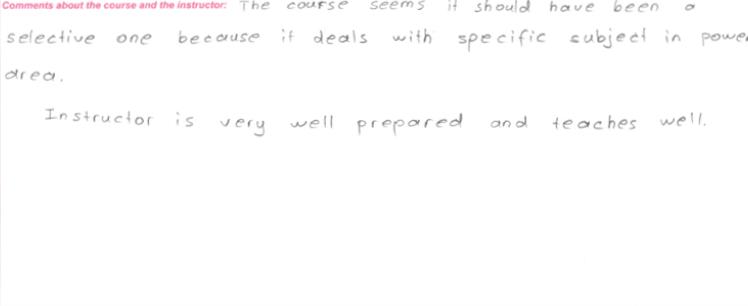 Comments about the course and the instructor: The course seems it should have been a
selective one because it deals with specific subject in power
area.
Instructor is very well prepared and teaches well.